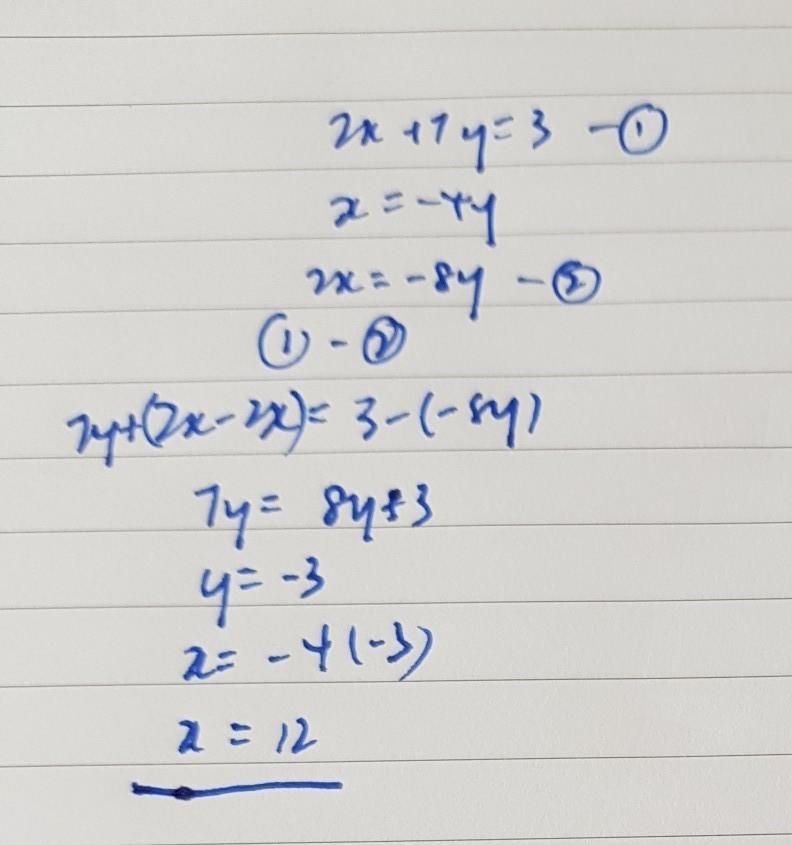 2x + 7y = 3 - ①
x = -4y
2x = -8y - ②
① - ②
7y + (2x - 2x) = 3 - (-8y)
7y = 8y + 3
y = -3
x = -4(-3)
x = 12